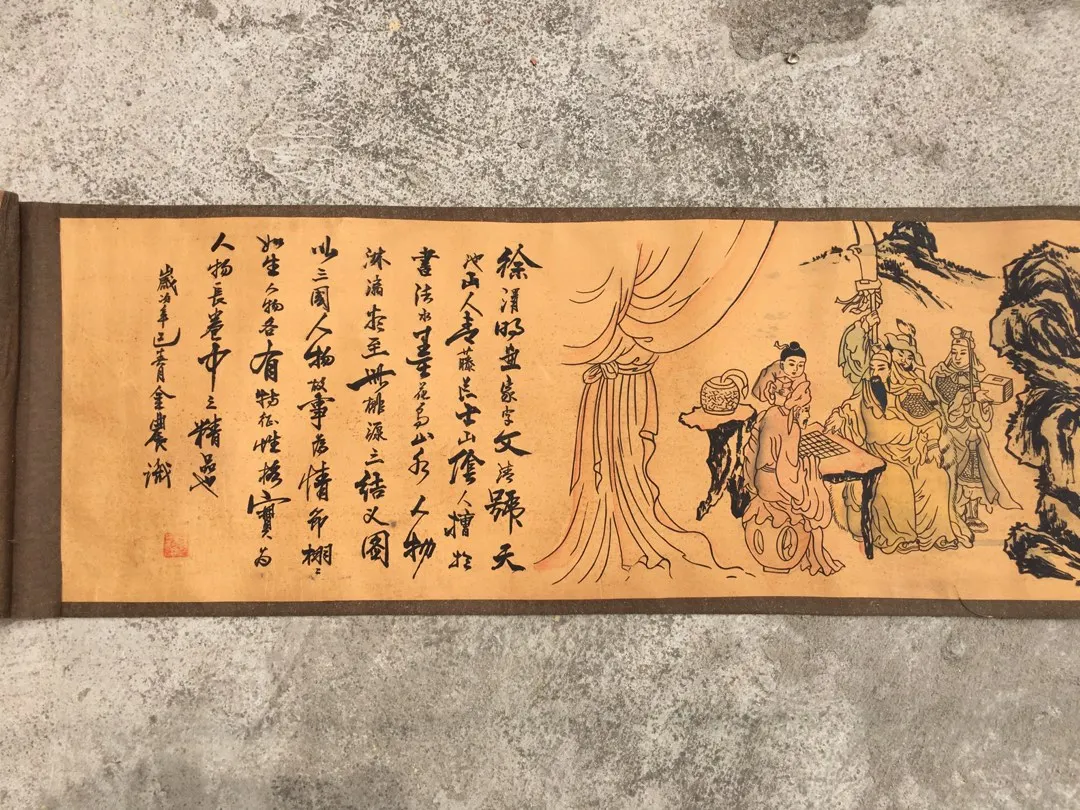 徐渭明画家字文清號天
池山人青藤居士山陰人擅於
書法水墨花鳥山水人物
淋漓
桃源三結义图
以三國人物故事為情節栩栩
如生人物各有特征性格實為
人物長卷中之精品
歲次辛巳青金農識